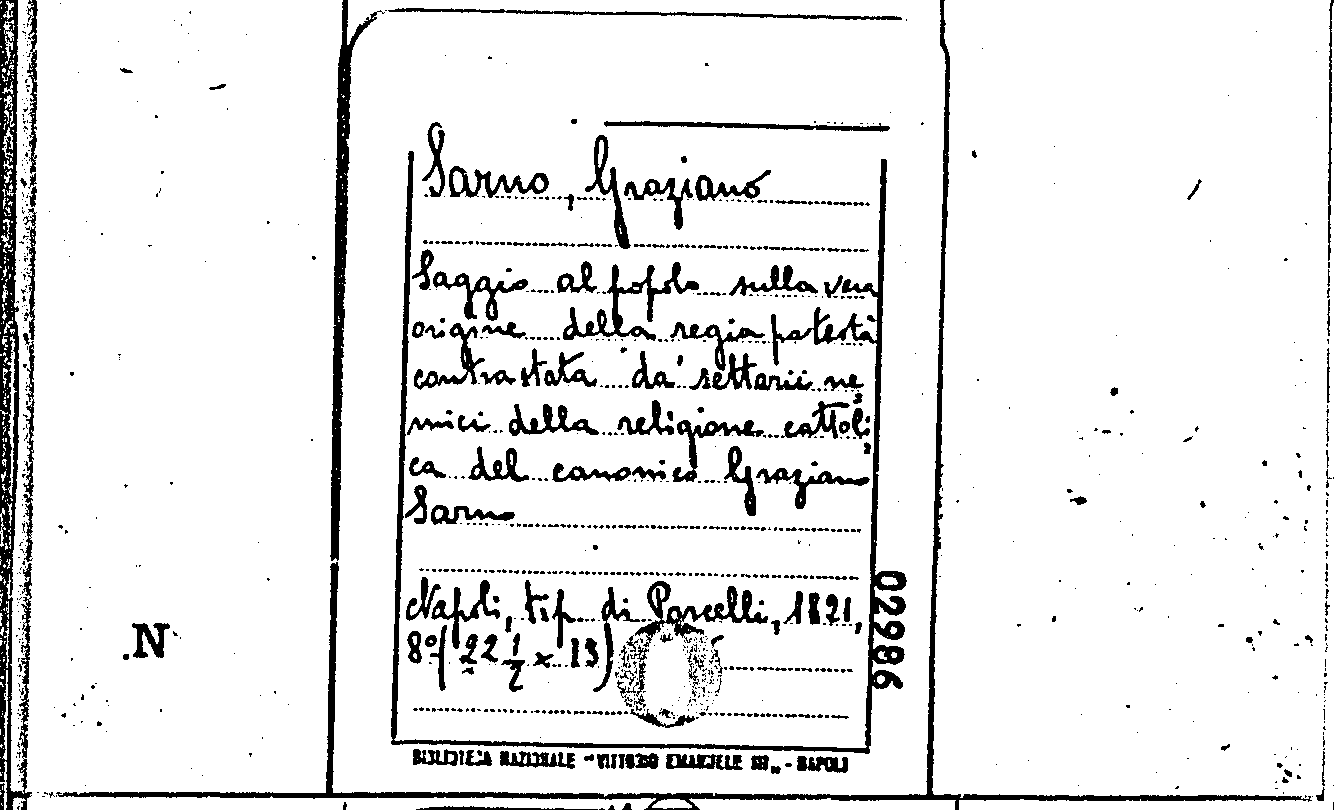 Sarno, Graziano
Saggio al popolo sulla vera
origine della regia potestà
contrastata da' settarii ne
mici della religione cattoli
ca del canonico Graziano
Sarno
Napoli, tip. di Porcelli, 1821,
8º (22 1/2 x 13)
02986
.N
BIBLIOTECA NAZIONALE "VITTORIO EMANUELE III" - NAPOLI